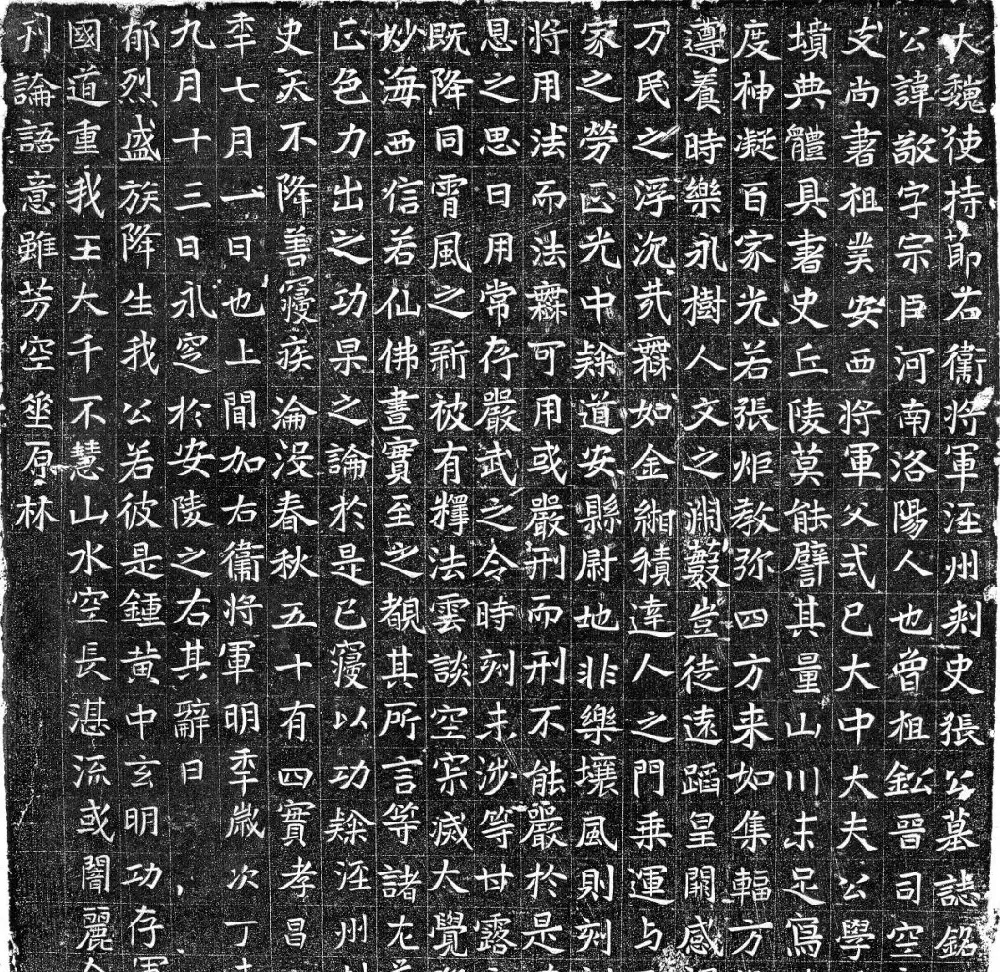 大魏使持節右衞將軍涇州刺史張公墓誌銘
公諱敬字宗巨河南洛陽人也曾祖鈆晉司空
支尚書祖業安西將軍父式巳大中大夫公學
墳典體具書史丘陵莫能譬其量山川未足寫
度神凝百家光若張炬教弥四方来如集輻方
遵養時樂永樹人文之渊藪豈徒遠蹈皇闕感
万民之浮沉或釋如金緗積達人之門乗運与
家之勞正光中除道安縣尉地非樂壤風則刻
將用法而法釋可用或嚴刑而刑不能嚴於是
恩之思日用常存嚴武之令時刻未涉等甘露
既降同霄風之新被有釋法雲談空宗滅大覺
妙海西信若仙佛晝實至之覩其所言等諸左
正色力出之功杲之論於是已寢以功除涇州
史天不降善寢疾淪没春秋五十有四實孝昌
秊七月一日也上聞加右衞將軍明秊嵗次丁
九月十三日永窆於安陵之右其辭曰
郁烈盛族降生我公若彼是鍾黄中玄明功存軍
國道重我王大千不慧山水空長湛流或闇麗
刊論語意雖芳空塋原林